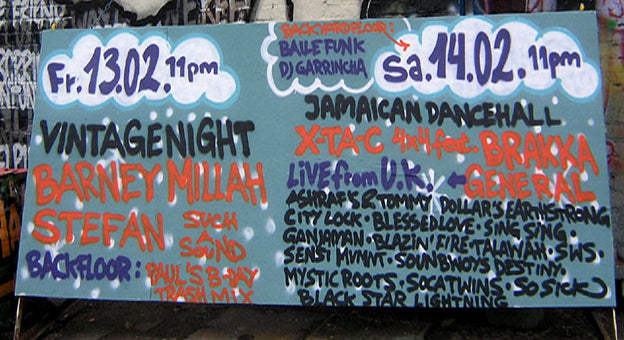 Fr. 13.02. 11pm
VINTAGENIGHT
BARNEY MILLAH
STEFAN
SUCH
A
SOUND
BACKFLOOR: PAUL'S B-DAY
TRASH MIX
BACKYARDFLOOR:
BAILE FUNK
DJ GARRINCHA
Sa. 14.02. 11pm
JAMAICAN DANCEHALL
X-TA-C 4x4 feat. BRAKKA
LIVE from U.K. GENERAL
ASHRAF'S & TOMMY DOLLAR'S EARTHSTRONG
CITY LOCK · BLESSEDLOVE · SING SING ·
GANJAMAN · BLAZIN' FIRE · TALAWAH · SWS ·
SENSI MVMNT · SOUNBWOYS DESTINY ·
MYSTIC ROOTS · SOCATWINS · SO SICK
BLACK STAR LIGHTNING